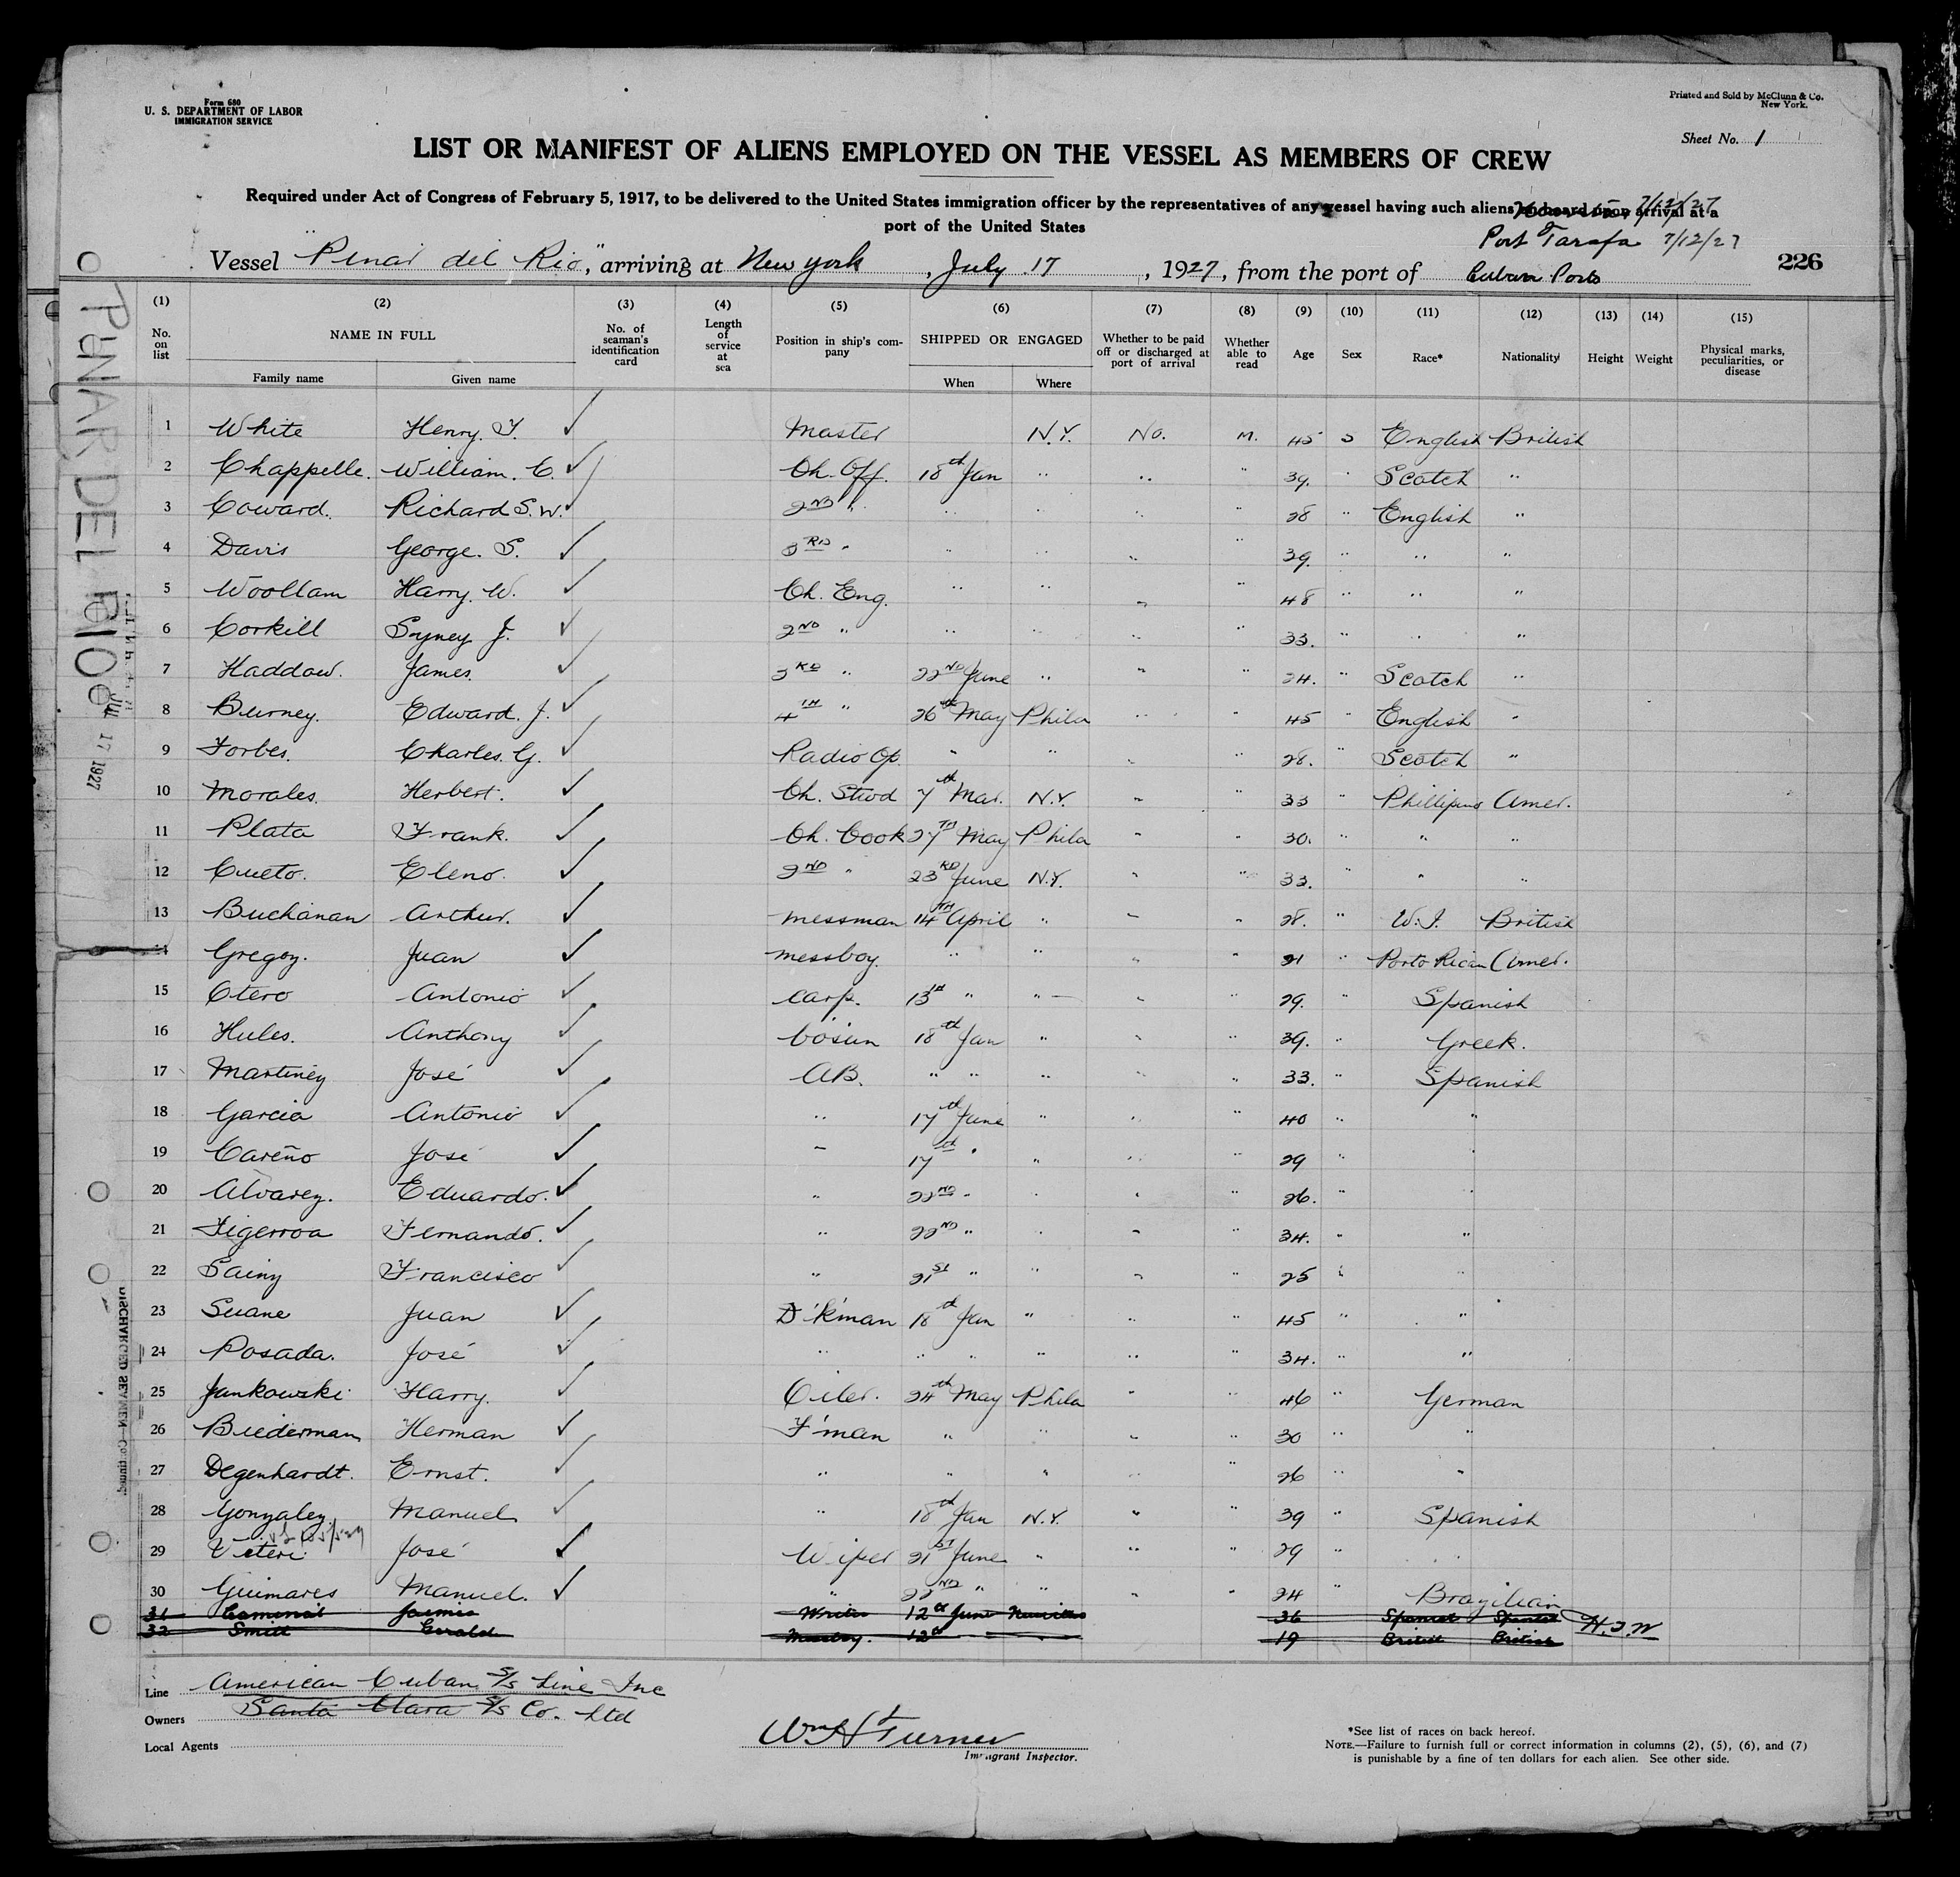 Form 680
U. S. DEPARTMENT OF LABOR
IMMIGRATION SERVICE
Printed and Sold by McClunn & Co.
New York.
Sheet No. 1
LIST OR MANIFEST OF ALIENS EMPLOYED ON THE VESSEL AS MEMBERS OF CREW
Required under Act of Congress of February 5, 1917, to be delivered to the United States immigration officer by the representatives of any vessel having such aliens on board upon arrival at a
port of the United States
7/12/27
Port Tarafa 7/12/27
Vessel "Pinar del Rio", arriving at New York, July 17, 1927, from the port of Cuban Ports
226
PINAR DEL RIO
JUL 17 1927
(1) (2) (3) (4) (5) (6) (7) (8) (9) (10) (11) (12) (13) (14) (15)
No. on list NAME IN FULL No. of seaman's identification card Length of service at sea Position in ship's company SHIPPED OR ENGAGED Whether to be paid off or discharged at port of arrival Whether able to read Age Sex Race* Nationality Height Weight Physical marks, peculiarities, or disease
Family name Given name When Where
1 White Henry. T. ✓ Master N.Y. No. M. 45 English British
2 Chappelle. William. C. ✓ Ch. Off. 18th Jan " " " 39. " Scotch "
3 Coward. Richard S. W. ✓ 2ND " " " " " 28 " English "
4 Davis George. S. ✓ 3RD " " " " " 39. " " "
5 Woollam Harry. W. ✓ Ch. Eng. " " " " 48 " " "
6 Corkill Syney J. ✓ 2ND " " " " " 33. " " "
7 Haddow. James. ✓ 3RD " 22ND June " " " 24. " Scotch "
8 Burney. Edward. J. ✓ 4TH " 26th May Phila " " 45 " English "
9 Forbes. Charles. G. ✓ Radio Op. " " " " 28. " Scotch "
10 Morales. Herbert. ✓ Ch. Stwd 7th Mar. N.Y. " " 33 " Phillipino Amer.
11 Plata Frank. ✓ Ch. Cook 27TH May Phila " " 30. " " "
12 Cueto. Eleno. ✓ 2ND " 23RD June N.Y. " " 33. " " "
13 Buchanan Arthur. ✓ Messman 14TH April " " " 28. " W.I. British
14 Gregoy. Juan ✓ Messboy. " " " " 21 " Porto Rican Amer.
15 Otero Antonio ✓ Carp. 13th " " " " 29. " Spanish
16 Hules. Anthony ✓ bosun 18th Jan " " " 39. " Greek.
17 Martinez José ✓ AB. " " " " " 33. " Spanish
18 Garcia Antonio ✓ " 17th June " " " 40 " "
19 Careño José ✓ " 17th " " " " 29 " "
20 Alvarez. Eduardo. ✓ " 22ND " " " " 26. " "
21 Figerroa Fernando. ✓ " 22ND " " " " 34. " "
22 Sainz Francisco ✓ " 21ST " " " " 25 " "
23 Suane Juan ✓ D'k'man 18th Jan " " " 45 " "
24 Posada. José ✓ " " " " " " 34. " "
25 Jankowski Harry. ✓ Oiler. 24th May Phila " " 46 " German
26 Biederman Herman ✓ F'man " " " " 30 " "
27 Degenhardt. Ernst. ✓ " " " " " 26 " "
28 Gonzalez. Manuel ✓ " 18th Jan N.Y. " " 39 " Spanish
29 José ✓ Wiper 21ST June " " " 29 " "
30 Guimares Manuel. ✓ " 22ND " " " " 24 " Brazilian
31 12th June 36 Spanish Spanish
32 Smith Gerald Messboy. 12th 19 British British
H.T.W
Line American Cuban S/S Line Inc
Owners Santa Clara S/S Co. Ltd
Local Agents
Wm H Turner
Immigrant Inspector.
*See list of races on back hereof.
NOTE.—Failure to furnish full or correct information in columns (2), (5), (6), and (7)
is punishable by a fine of ten dollars for each alien. See other side.